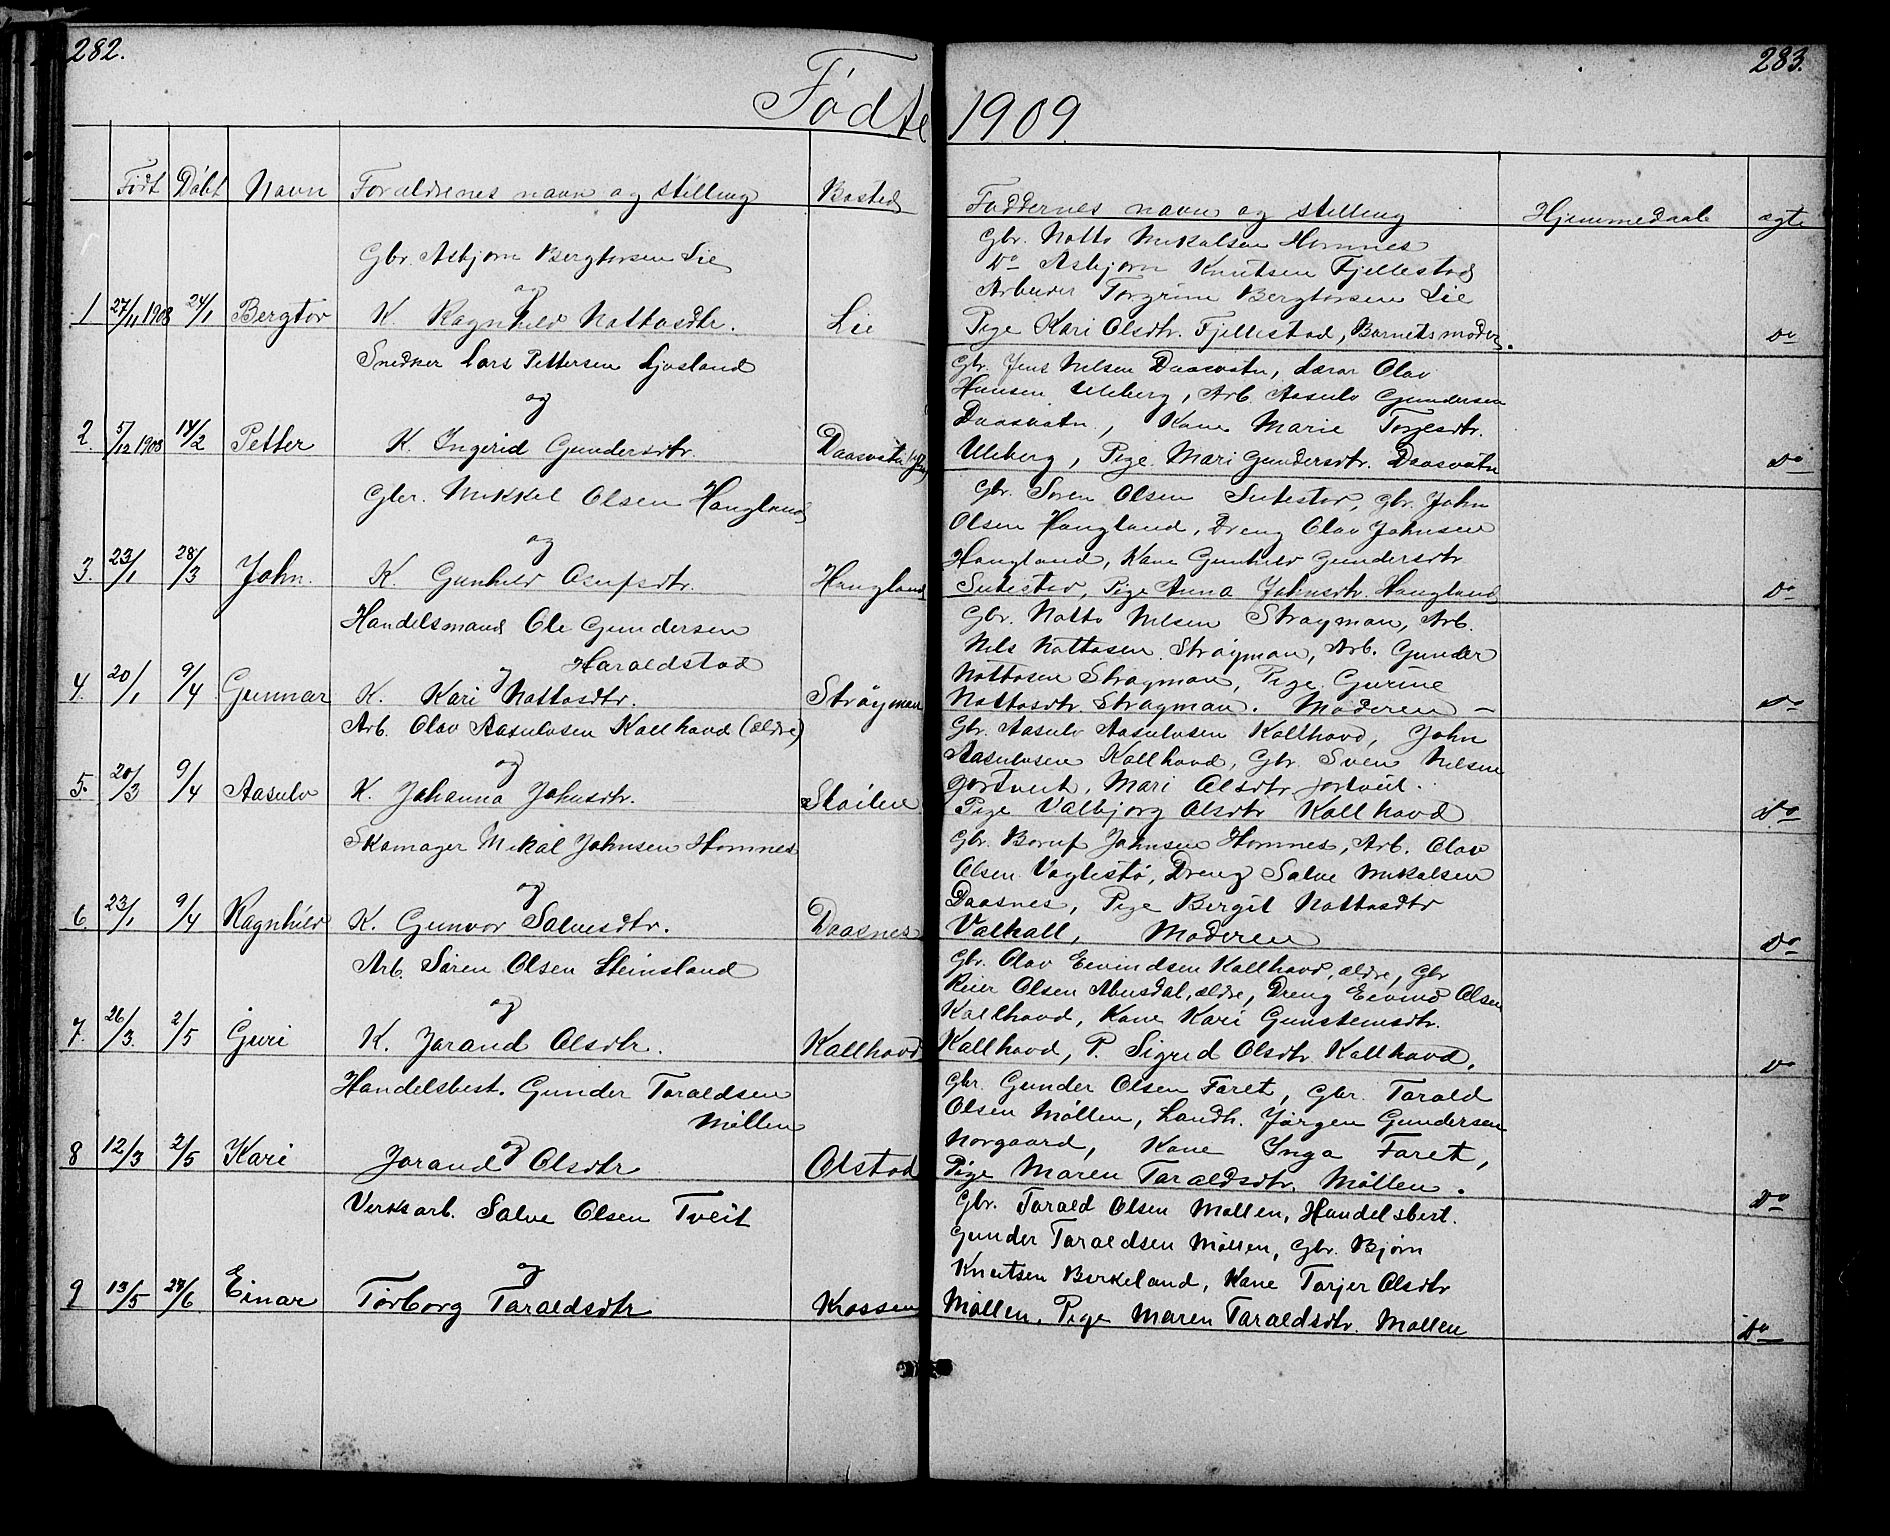 282.
Fødte
Født Døbt Navn Forældrenes navn og stilling Bosted
Gbr. Asbjørn Bergtorsen Lie
og
1 27/11 1908 24/1 Bergtor K. Ragnhild Nottosdtr. Lie
Snedker Lars Pettersen Ljosland
og
2 5/12 1908 14/2 Petter K. Ingerid Gundersdtr. Daasvatn
Gbr. Mikkel Olsen Haugland
og
3. 23/1 28/3 John. K. Gunhild Asufsdtr. Haugland
Handelsmand Ole Gundersen
Haraldstad
og
4. 20/1 9/4 Gunnar K. Kari Nottosdtr. Strøyman
Arb. Olav Aasulvsen Kallhovd (ældre)
og
5. 20/3 9/4 Aasulv K. Johanna Johnsdtr. Støilen
Skomager Mikal Johnsen Homnes
og
6. 23/1 9/4 Ragnhild K. Gunvor Salvesdtr. Daasnes
Arb. Søren Olsen Steinsland
og
7. 26/3. 2/5 Guri K. Jorand Olsdtr. Kallhovd
Handelsbest. Gunder Taraldsen
Møllen
og
8 12/3 2/5 Kari Jorand Olsdtr Olstad
Verksarb. Salve Olsen Tveit
og
9 13/5 24/6 Einar Torborg Taraldsdtr Krossen
283.
1909.
Faddernes navn og stilling Hjemmedaab ægte
Gbr. Notto Mikalsen Homnes
Do Asbjørn Knutsen Fjellestad
Arbeider Torgrim Bergtorsen Lie
Pige Kari Olsdtr. Fjellestad, Barnets moder. Do
Gbr. Jens Nilsen Daasvatn, Lærer Olav
Hansen Uleberg, Arb. Aasulv Gundersen
Daasvatn, Kone Marie Torjesdtr.
Uleberg, Pige Mari Gundersdtr. Daasvatn Do
Gbr. Søren Olsen Sutestad, Gbr. John
Olsen Haugland, Dreng Olav Johnsen
Haugland, Kone Gunhild Gundersdtr
Sutestad, Pige Anna Johnsdtr. Haugland Do
Gbr. Notto Nilsen Strøyman, Arb.
Nils Nottosen Strøyman, Arb. Gunder
Nottosen Strøyman, Pige Gurine
Nottosdtr Strøyman. Moderen – Do
Gbr. Aasulv Aasulvsen Kallhovd, John
Aasulvsen Kallhovd, Gbr. Sven Nilsen
Jortveit, Mari Olsdtr Jortveit.
Pige Valbjørg Olsdtr Kallhovd Do
Gbr. Boruf Johnsen Homnes, Arb. Olav
Olsen Voglestø, Dreng Salve Mikalsen
Daasnes, Pige Bergit Nottosdtr
Valhall, Moderen Do
Gbr. Olav Eivindsen Kallhovd, ældre, Gbr
Reier Olsen Abusdal, ældre, Dreng Eivind Olsen
Kallhovd, Kone Kari Gunsteinsdtr.
Kallhovd, P. Sigrid Olsdtr. Kallhovd. Do
Gbr. Gunder Olsen Faret, Gbr. Tarald
Olsen Møllen, Landh. Jørgen Gundersen
Norgaard, Kone Inga Faret,
Pige Maren Taraldsdtr. Møllen. Do
Gbr. Tarald Olsen Møllen, Handelsbest.
Gunder Taraldsen Møllen, Gbr. Bjørn
Knutsen Birkeland, Kone Torjer Olsdtr
Møllen, Pige Maren Taraldsdtr. Møllen Do